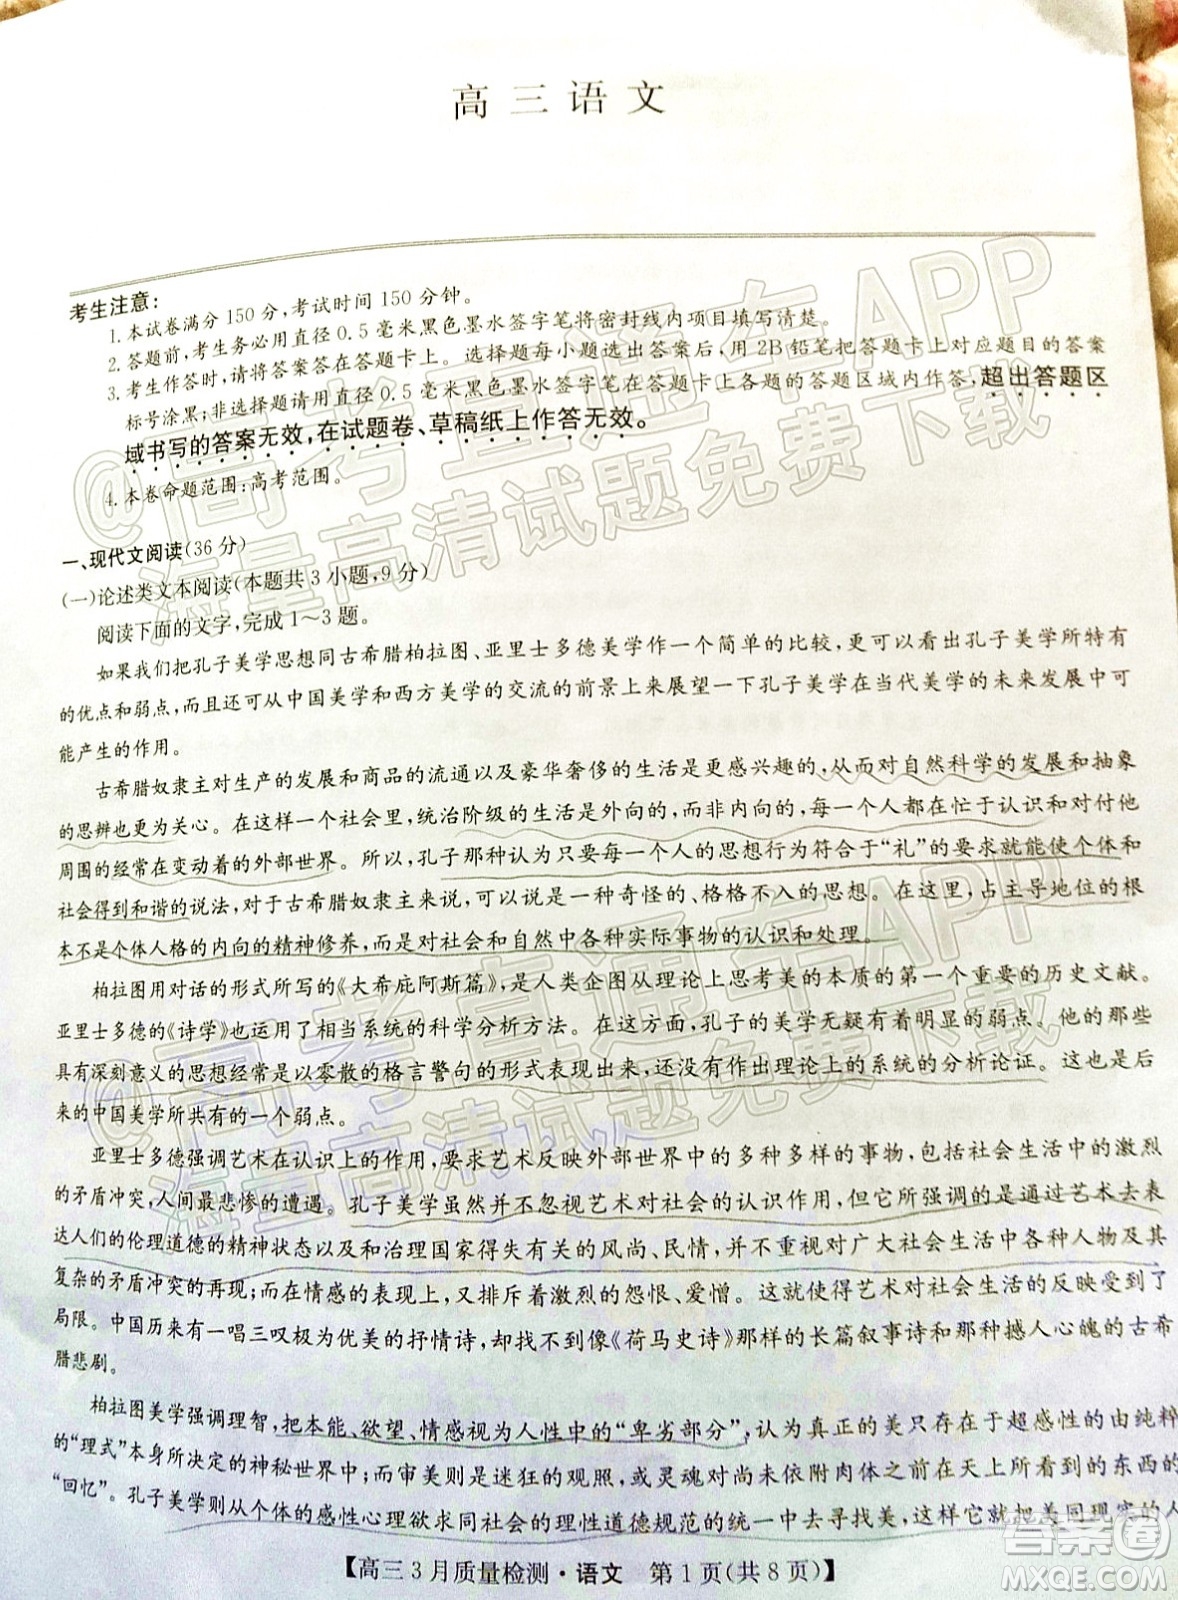 高三语文
考生注意:
1.本试卷满分150分,考试时间150分钟。
2.答题前,考生务必用直径0.5毫米黑色墨水签字笔将密封线内项目填写清楚。
3.考生作答时,请将答案答在答题卡上。选择题每小题选出答案后,用2B铅笔把答题卡上对应题目的答案
标号涂黑;非选择题请用直径0.5毫米黑色墨水签字笔在答题卡上各题的答题区域内作答,超出答题区
域书写的答案无效,在试题卷、草稿纸上作答无效。
4.本卷命题范围:高考范围。
一、现代文阅读(36分)
(一)论述类文本阅读(本题共3小题,9分)
阅读下面的文字,完成1~3题。
如果我们把孔子美学思想同古希腊柏拉图、亚里士多德美学作一个简单的比较,更可以看出孔子美学所特有
的优点和弱点,而且还可以从中国美学和西方美学的交流的前景上来展望一下孔子美学在当代美学的未来发展中可
能产生的作用。
古希腊奴隶主对生产的发展和商品的流通以及豪华奢侈的生活是更感兴趣的,从而对自然科学的发展和抽象
的思辨也更为关心。在这样一个社会里,统治阶级的生活是外向的,而非内向的,每一个人都在忙于认识和对付他
周围的经常在变动着的外部世界。所以,孔子那种认为只要每一个人的思想行为符合于“礼”的要求就能使个体和
社会得到和谐的说法,对于古希腊奴隶主来说是一种奇怪的、格格不入的思想。在这里,占主导地位的根
本不是个体人格的内向的精神修养,而是对社会和自然中各种实际事物的认识和处理。
柏拉图用对话的形式所写的《大希庇阿斯篇》,是人类企图从理论上思考美的本质的第一个重要的历史文献。
亚里士多德的《诗学》也运用了相当系统的科学分析方法。在这方面,孔子的美学无疑有着明显的弱点。他的那些
具有深刻意义的思想经常是以零散的格言警句的形式表现出来,还没有作出理论上的系统的分析论证。这也是后
来的中国美学所共有的一个弱点。
亚里士多德强调艺术在认识上的作用,要求艺术反映外部世界中的多种多样的事物,包括社会生活中的激烈
的矛盾冲突,人间最悲惨的遭遇。孔子美学虽然并不忽视艺术对社会的认识作用,但它所强调的是通过艺术去表
达人们的伦理道德的精神状态以及和治理国家得失有关的风尚、民情,并不重视对广大社会生活中各种人物及其
复杂的矛盾冲突的再现;而在情感的表现上,又排斥着激烈的怨恨、爱憎等。这就使得艺术对社会生活的反映受到了
局限。中国历来有一唱三叹极为优美的抒情诗,却找不到像《荷马史诗》那样的长篇叙事诗和那种撼人心魄的古希
腊悲剧。
柏拉图美学强调理智,把本能、欲望、情感视为人性中的“卑劣部分”,认为真正的美只存在于超感性的由纯粹
的“理式”本身所决定的神秘世界中;而审美则是迷狂的观照,或是灵魂对尚未依附肉体之前在天上所看到的东西的
“回忆”。孔子美学则从个体的感性心理欲求同社会的理性道德规范的统一中去寻找美,这样它就把美同现实的人
【高三3月质量检测·语文 第1页(共8页)】
@高考直通车APP
海量高清试题免费下载
@高考直通车APP
海量高清试题免费下载
答案卷
MXQE.COM